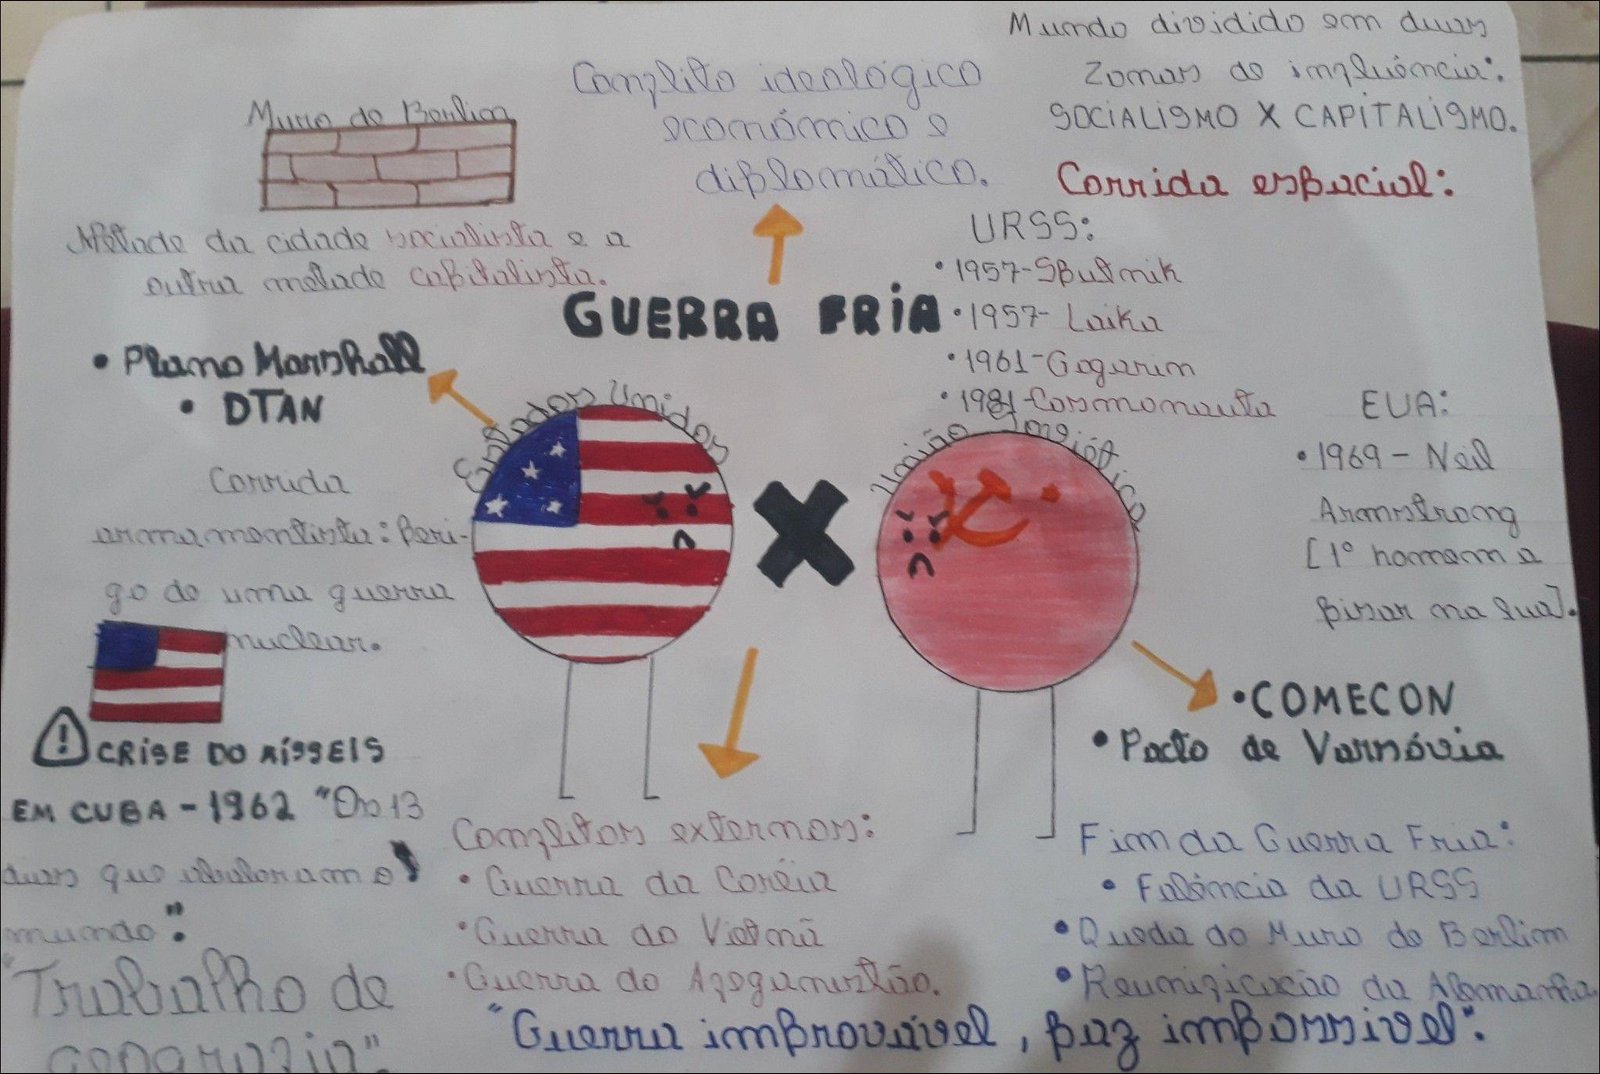 Mundo dividido em duas
Zonas de influência:
SOCIALISMO X CAPITALISMO.
Conflito ideológico
econômico e
diplomático.
Muro de Berlim
Metade da cidade socialista e a
outra metade capitalista.
GUERRA FRIA
Corrida espacial:
URSS:
• 1957-Sputnik
• 1957- Laika
• 1961-Gagarin
• 1981-Cosmonauta
EUA:
• 1969 - Neil
Armnstrong
[1° homem a
pisar na lua].
• Plano Marshall
• OTAN
Estados Unidos
União Soviética
X
Corrida
armamentista: Peri-
go de uma guerra
nuclear.
! CRISE DO MÍSSEIS
EM CUBA - 1962 "Os 13
dias que abalaram o
mundo".
• COMECON
• Pacto de Varsóvia
Conflitos externos:
• Guerra da Coréia
• Guerra do Vietnã
• Guerra do Afeganistão.
Fim da Guerra Fria:
• Falência da URSS
• Queda do Muro de Berlim
• Reunificação da Alemanha
"Trabalho de
geografia".
"Guerra improvável, paz impossível".